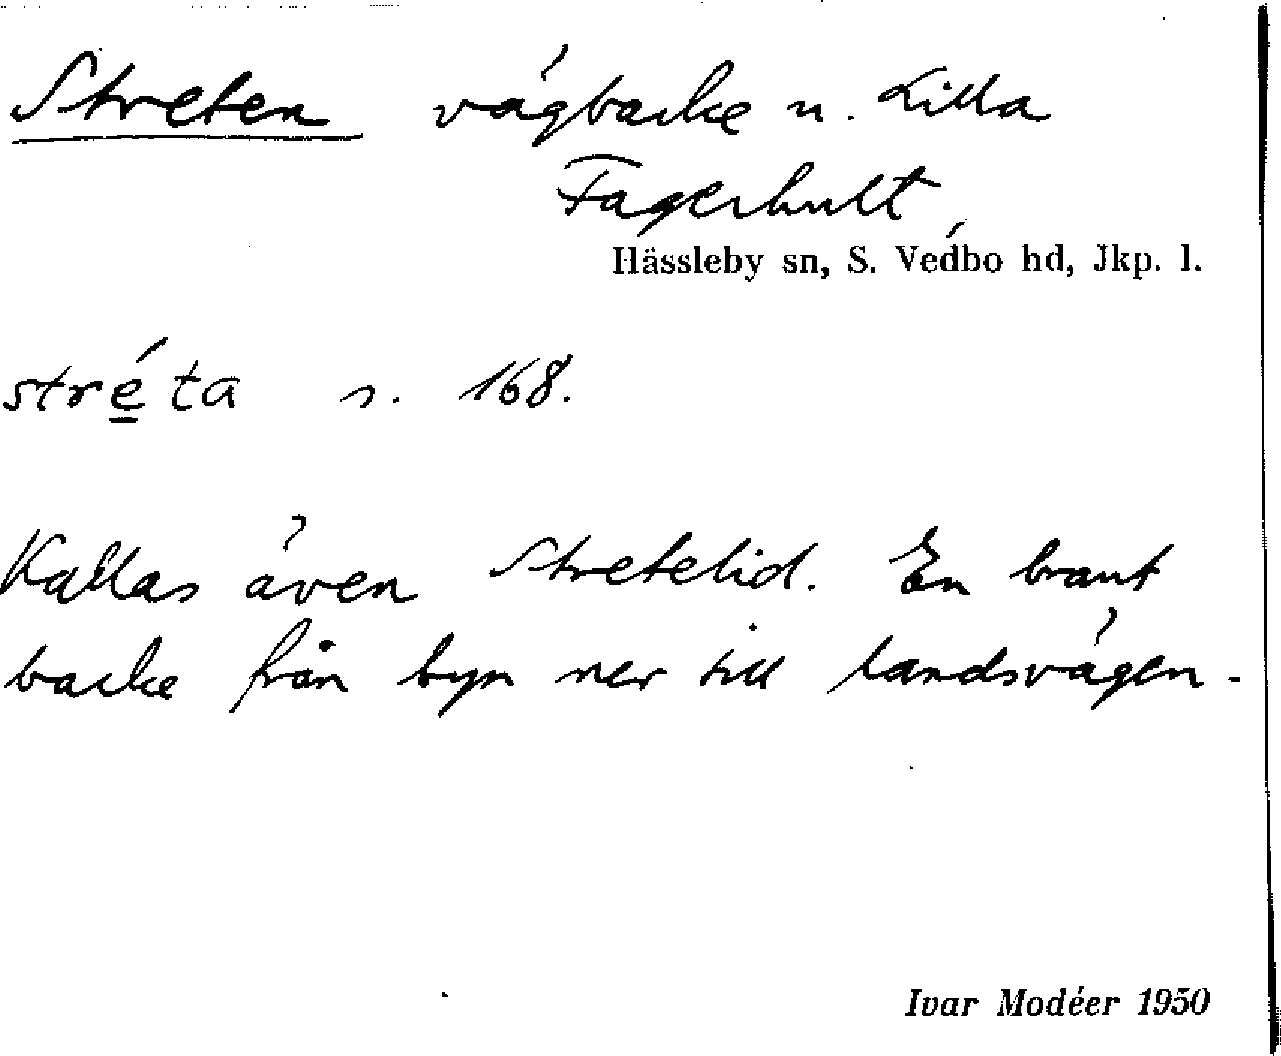 Streten vägbacke n. Lilla
Fagerhult
Hässleby sn, S. Vedbo hd, Jkp. l.
stréta s. 168.
Kallas även Stretelid. En brant
backe från byn ner till landsvägen.
Ivar Modéer 1950